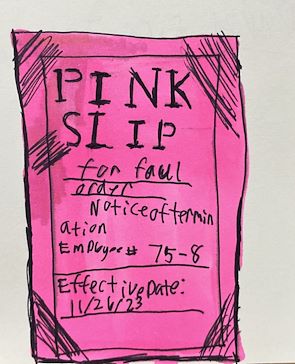 PINK
SLIP
for faul
order
Notice of termin
ation
Employee # 75-8
Effective Date:
11/26/23